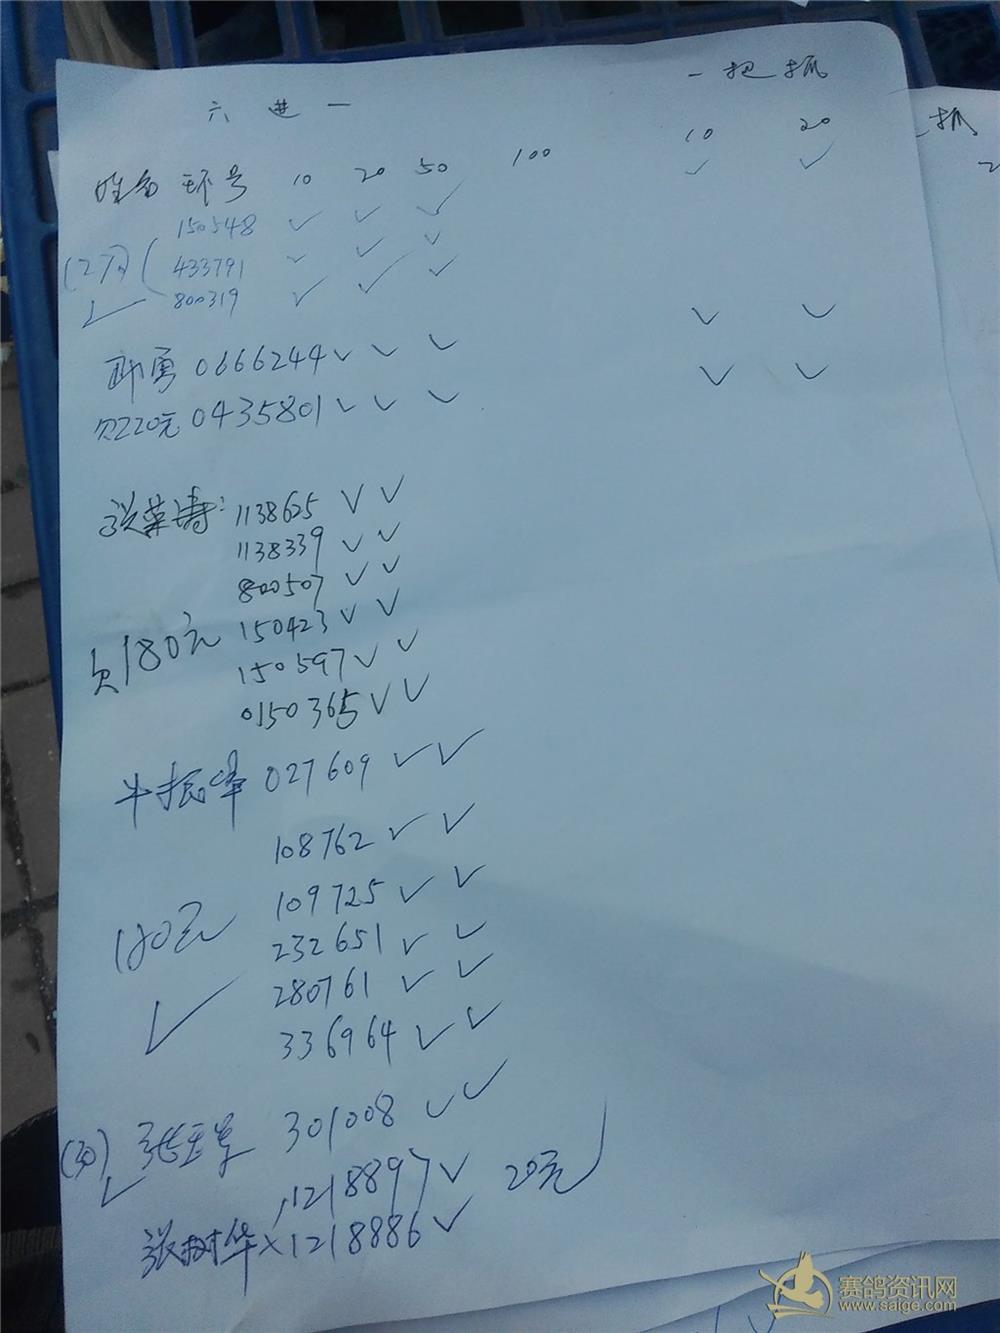 六进一 一把抓
姓名 环号 10 20 50 100 10 20
150548 ✓ ✓ ✓ ✓ ✓
433791 ✓ ✓ ✓
800319 ✓ ✓ ✓
✓
勇 0666244 ✓ ✓ ✓ ✓ ✓
欠220元 0435801 ✓ ✓ ✓ ✓ ✓
1138625 ✓ ✓
1138339 ✓ ✓
800507 ✓ ✓
欠180元 150423 ✓ ✓
150597 ✓ ✓
0150365 ✓ ✓
牛振峰 027609 ✓ ✓
108762 ✓ ✓
180元 109725 ✓ ✓
232651 ✓ ✓
280761 ✓ ✓
✓ 336964 ✓ ✓
(30) ✓ 301008 ✓ ✓
1218897 ✓ 20元
张树华 × 1218886 ✓
抓
2
赛鸽资讯网
www.saige.com